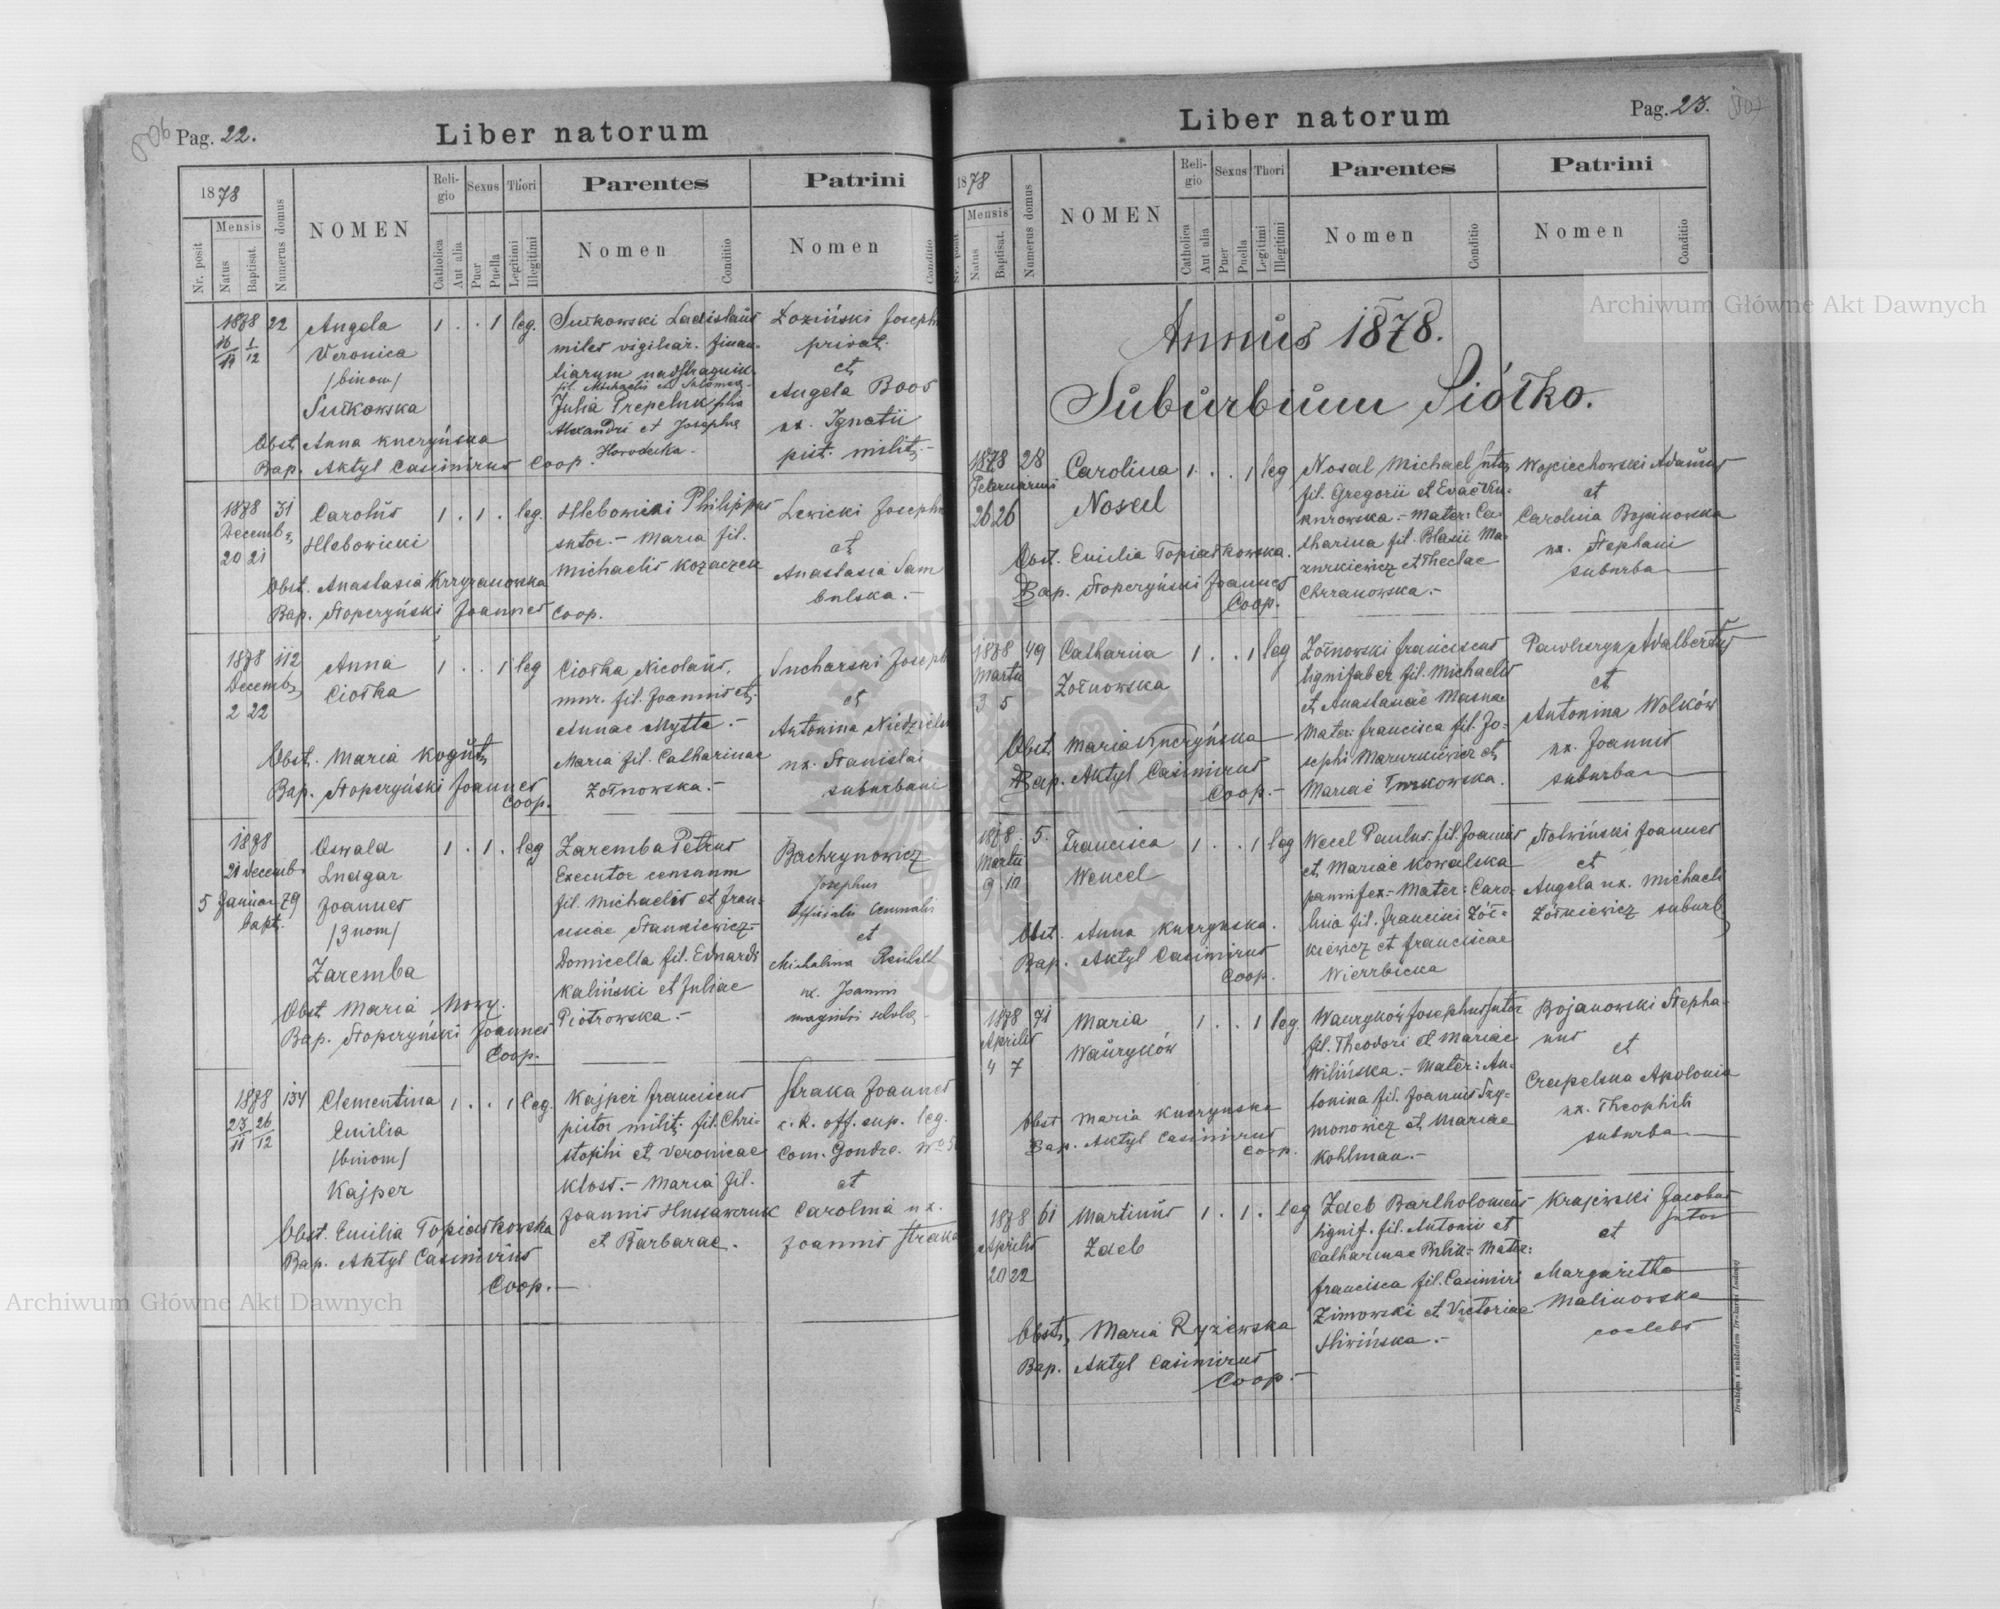 Pag. 22.
Liber natorum
1878
Nr. posit
Mensis
Natus
Baptisat.
Numerus domus
NOMEN
Religio
Catholica
Aut alia
Sexus
Puer
Puella
Thori
Legitimi
Illegitimi
Parentes
Nomen
Conditio
Patrini
Nomen
Conditio
1878 22 Angela 1 . . 1 leg. Ladislaus Josephus
16/11 1/12 Veronica miles vigiliar. finan- privat.
/binom/ tiarum et
Julia filia Angela Boos
Alexandri et Josepha ux. Ignatii
Obst. Anna Kuczyńska Horodecka pist. milit.
Bap. Aktyl Casimirus Coop.
1878 31 Carolus 1 . 1 . leg. Hlebowicki Philippus Lewicki Josephus
Decemb. Hlebowicki sutor. - Maria fil. et
20 21 Michaelis Kozaczek Anastasia Sam
Obst. Anastasia Krzyzanowska bulska. -
Bap. Stopczyński Joannes Coop.
1878 112 Anna 1 . . 1 leg Ciołka Nicolaus, Sucharski Joseph
Decemb. Ciołka mur. fil. Joannis et et
2 22 Annae Mytta. - Antonina
Obst. Maria Kogut Maria fil. Catharinae ux. Stanislai
Bap. Stopczyński Joannes Coop. Żołnowska. - suburbani
1878 Oswald 1 . 1 . leg Zaremba Petrus Bachrynowicz
21 Decemb. Ludgar Executor censuum Josephus
5 Januar 79 Joannes fil. Michaelis et Fran-
bapt. /3 nom/ ciscae Stankiewicz - et
Zaremba Domicella fil. Eduardi Michalina
Obst. Maria Nowy. Kaliński et Juliae ux. Joannis
Bap. Stopczyński Joannes Piotrowska. - magistri scholae
Coop. -
1878 134 Clementina 1 . . 1 leg. Kajper Franciscus Straka Joannes
23/11 26/12 Emilia pistor milit. fil. Chri- c. k. off. sup. leg.
/binom/ stophi et Veronicae Com.
Kajper Klost. - Maria fil. et
Obst. Emilia Topiatkowska Joannis Carolina ux.
Bap. Aktyl Casimirus et Barbarae. Joannis Straka
Coop. -
Pag. 23.
Liber natorum
1878
Nr. posit
Mensis
Natus
Baptisat.
Numerus domus
NOMEN
Religio
Catholica
Aut alia
Sexus
Puer
Puella
Thori
Legitimi
Illegitimi
Parentes
Nomen
Conditio
Patrini
Nomen
Conditio
Annus 1878.
Suburbium Siółko.
1878 28 Carolina 1 . . 1 leg Nosal Michael sutor Wojciechowski Adamus
Februarius Nosal fil. Gregorii et Evae et
26 26 Mater: Ca- Carolina Bojanowska
Obst. Emilia Topiatkowska. tharina fil. Blasii Ma- ux. Stephani
Bap. Stopczyński Joannes zurkiewicz et Theclae suburba
Coop. Chrzanowska. -
1878 49 Catharina 1 . . 1 leg Żołnowski Franciscus Pawluczyn Adalbertus
Martii Żołnowska lignifaber fil. Michaelis et
3 5 et Anastasiae Antonina Wolków
Obst. Maria Kuczyńska Mater: Francisca fil. Jo- ux. Joannis
Bap. Aktyl Casimirus sephi Mazurkiewicz et suburba
Coop. - Mariae Turkowska.
1878 5. Francisca 1 . . 1 leg Wecel Paulus fil. Joannis Stolwiński Joannes
Martii Wencel et Mariae Kowalska et
9 10 pannifex - Mater: Caro- Angela ux. Michaeli
Obst. Anna Kuczynska. lina fil. Francisci Żół- Żółkiewicz suburb
Bap. Aktyl Casimirus kiewicz et Franciscae
Coop. Wierzbicka
1878 71 Maria 1 . . 1 leg. Wauryków Josephus sutor Bojanowski Stepha-
Aprilis Wauryków fil. Theodori et Mariae nus
4 7 Wilińska. - Mater: An- et
Obst Maria Kuczynska tonina fil. Joannis Szy- Czapelska Apolonia
Bap. Aktyl Casimirus monowicz et Mariae ux. Theophili
Coop. Kohlman. - suburba
1878 61 Martinus 1 . 1 . leg Zdeb Bartholomeus Krajewski Jacobus
Aprilis Zdeb lignif. fil. Antonii et sutor
20 22 Catharinae - Mater: et
Francisca fil. Casimiri Margaritha
Obst. Maria Ryżewska Zimowski et Victoriae Malinowska
Bap. Aktyl Casimirus Śliwińska. - coelebs
Coop. -
Archiwum Główne Akt Dawnych
Archiwum Główne Akt Dawnych